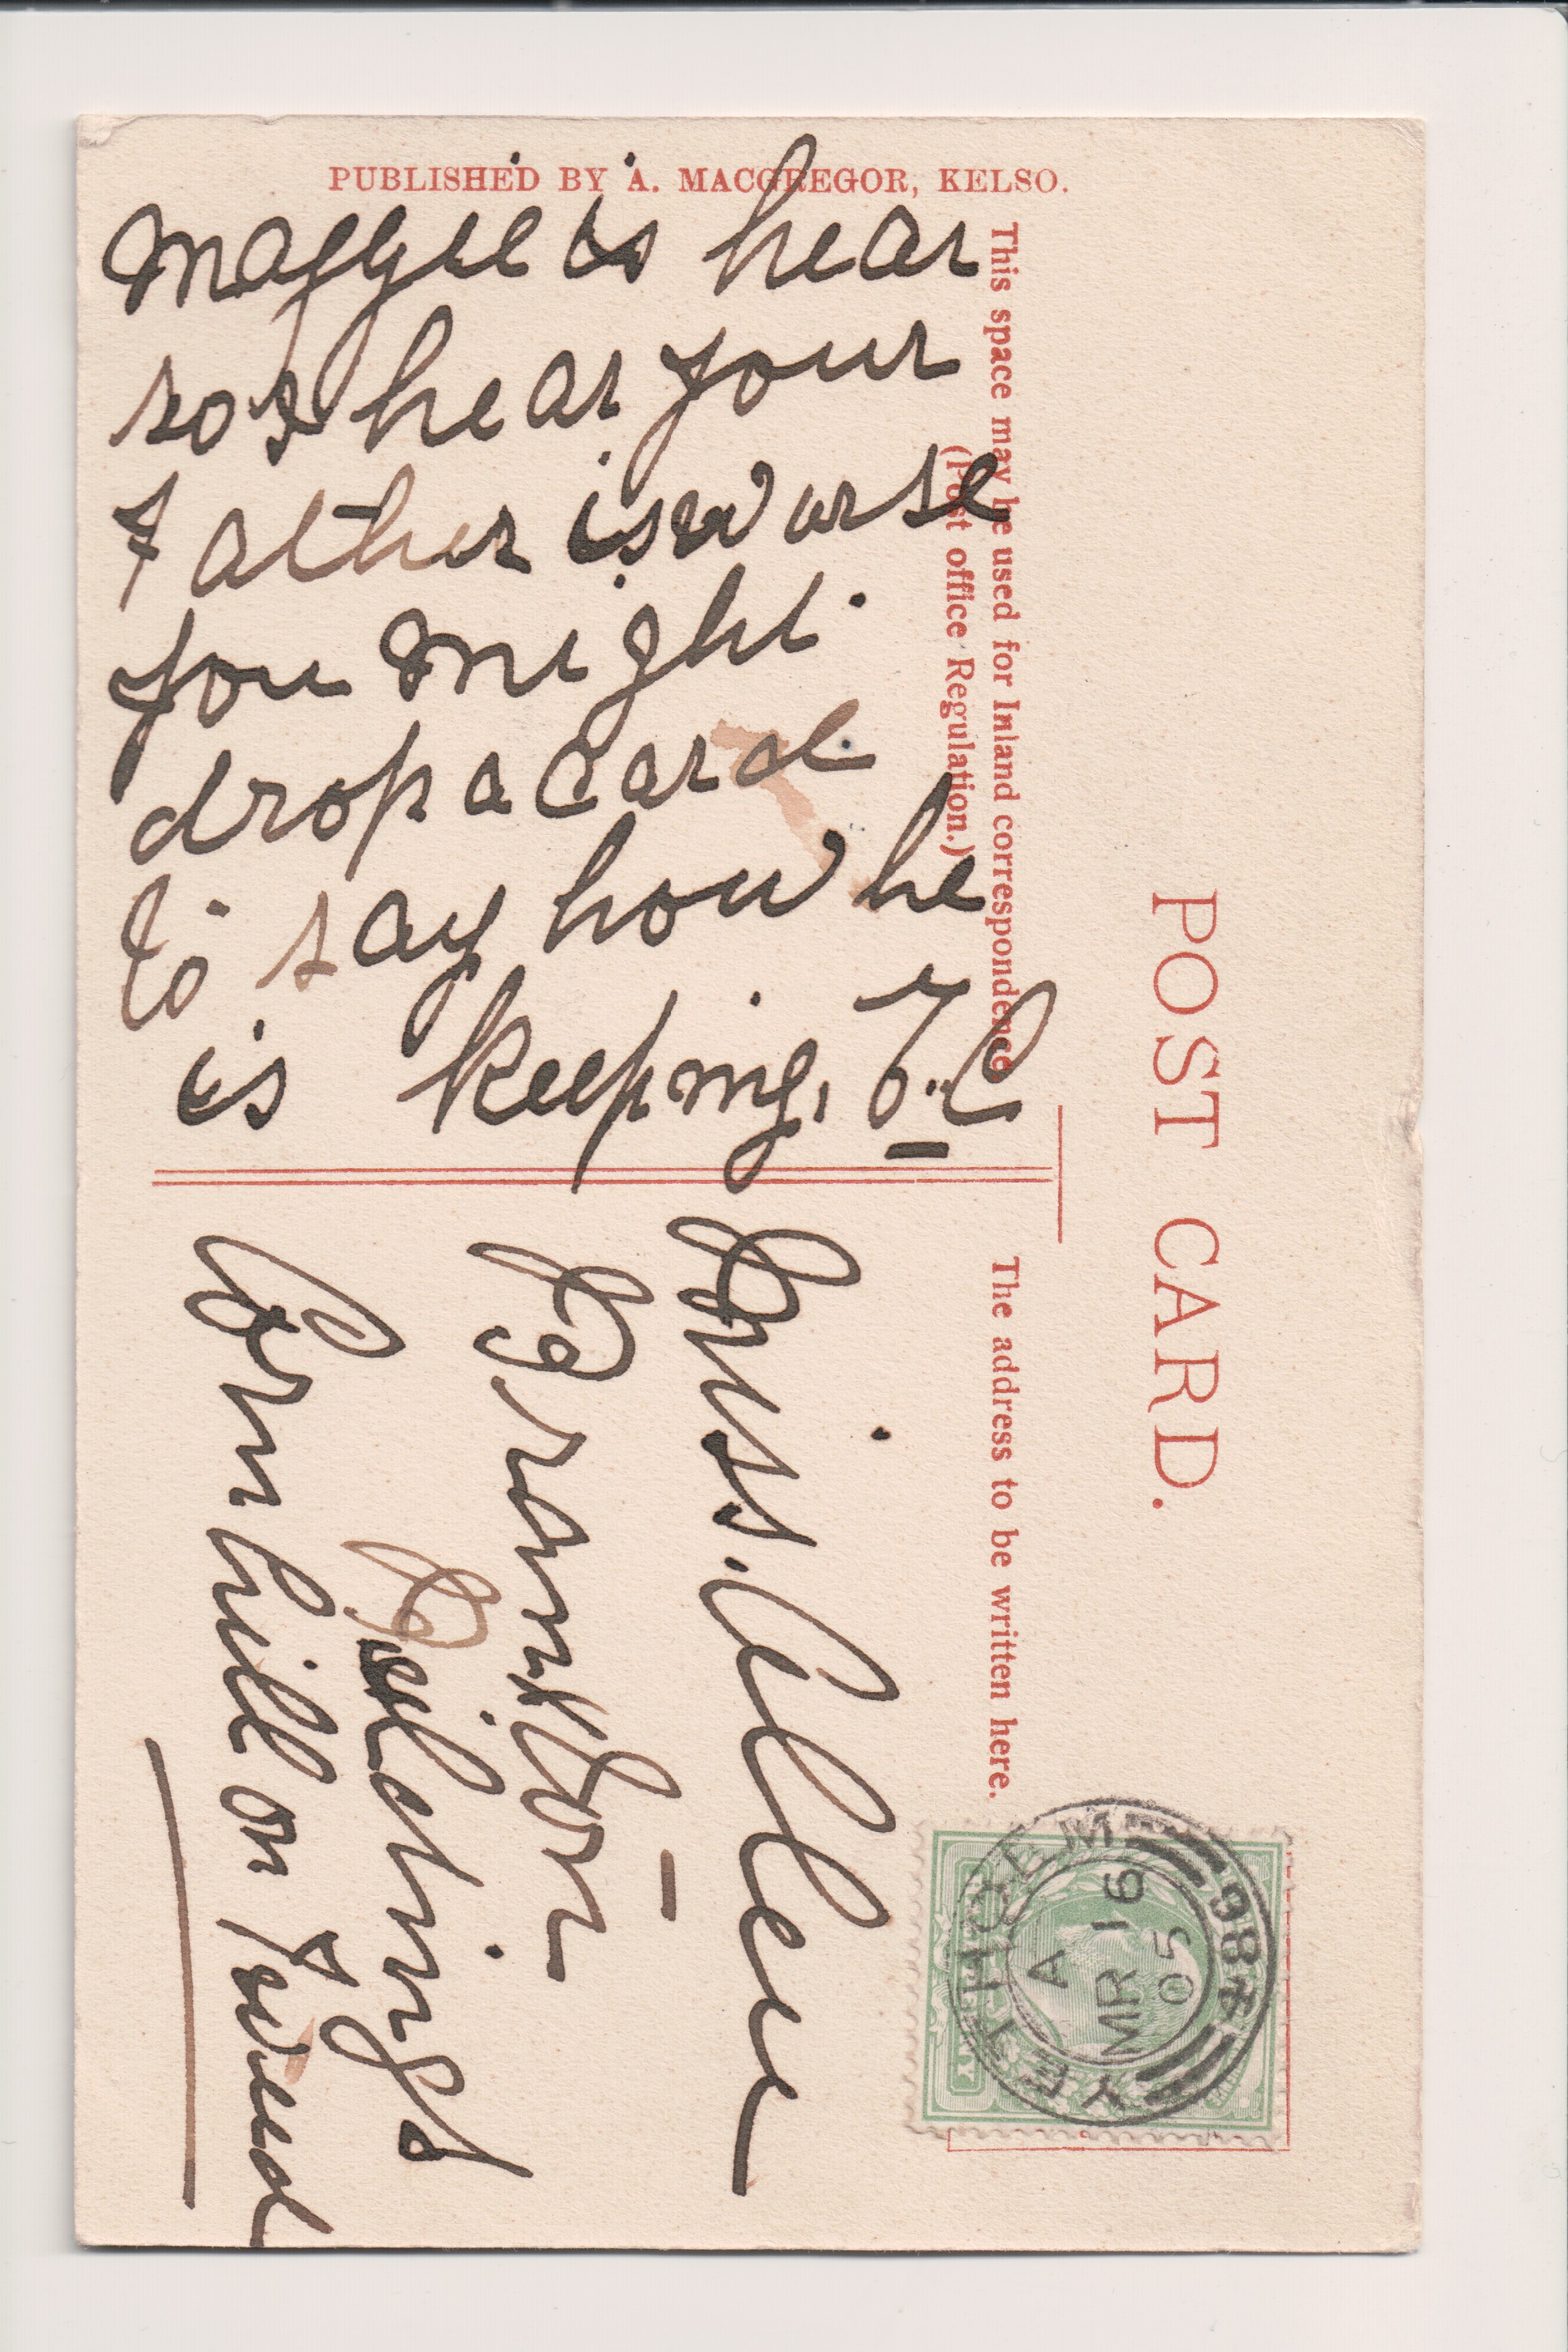 PUBLISHED BY A. MACGREGOR, KELSO.
POST CARD.
This space may be used for Inland correspondence
(Post office Regulation.)
The address to be written here.
Maggie is hear
hear your
Father is worse
you might
drop a card
to say how he
is keeping. T.C
Miss. Alice
Branxton
Buildings
Cornhill on Tweed
YETHOLM
A
MR 16
05
984